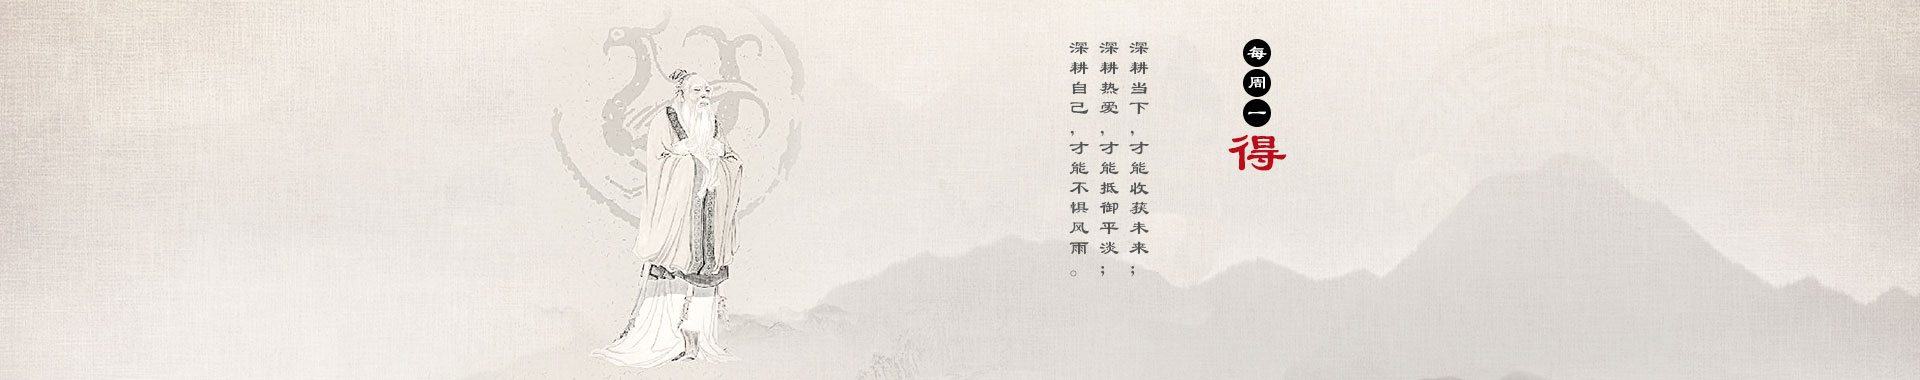 每周一得
深耕当下,才能收获未来;
深耕热爱,才能抵御平淡;
深耕自己,才能不惧风雨。